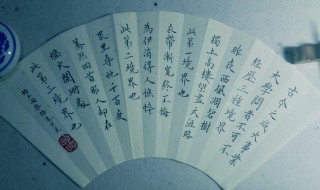 古今之成大事業
大學問者不可不
經歷三種境界
昨夜西風凋碧樹
獨上高樓望盡天涯路
此第一境界也
衣帶漸寬終不悔
為伊消得人憔悴
此第二境界也
眾里尋他千百度
驀然回首那人却在
燈火闌珊處
此第三境界也